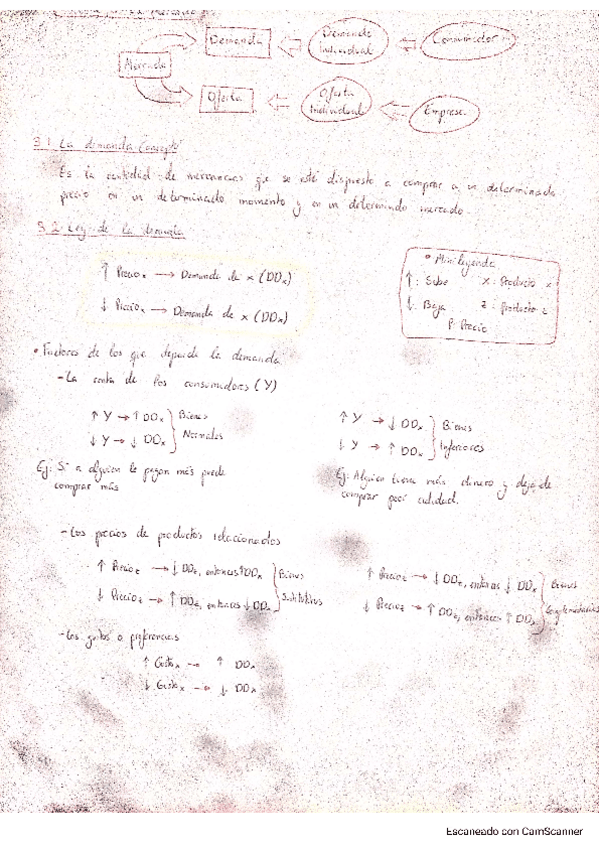 Demanda
Demanda Individual
Consumidor
Mercado
Oferta
Oferta Individual
Empresa
3.1 La demanda Concepto
Es la cantidad de mercancias que se esté dispuesto a comprar a un determinado
precio en un determinado momento y en un determinado mercado.
3.2 Ley de la demanda
↑ Precioₓ → Demanda de x (DDₓ)
↓ Precioₓ → Demanda de x (DDₓ)
• Mini leyenda
↑: Sube x: Producto x
↓: Baja z: producto z
P: Precio
• Factores de los que depende la demanda
- La renta de los consumidores (Y)
↑ Y → ↑ DDₓ } Bienes
↓ Y → ↓ DDₓ } Normales
↑ Y → ↓ DDₓ } Bienes
↓ Y → ↑ DDₓ } Inferiores
Ej: Si a alguien le pagan más puede
comprar más
Ej: Alguien tiene más dinero y deja de
comprar peor calidad.
- Los precios de productos relacionados
↑ Precio z → ↓ DDz, entonces ↑ DDₓ } Bienes
↓ Precio z → ↑ DDz, entonces ↓ DDₓ } Sustitutivos
↑ Precio z → ↓ DDz, entonces ↓ DDₓ } Bienes
↓ Precio z → ↑ DDz, entonces ↑ DDₓ } Complementarios
- Los gustos o preferencias
↑ Gustoₓ → ↑ DDₓ
↓ Gustoₓ → ↓ DDₓ
Escaneado con CamScanner